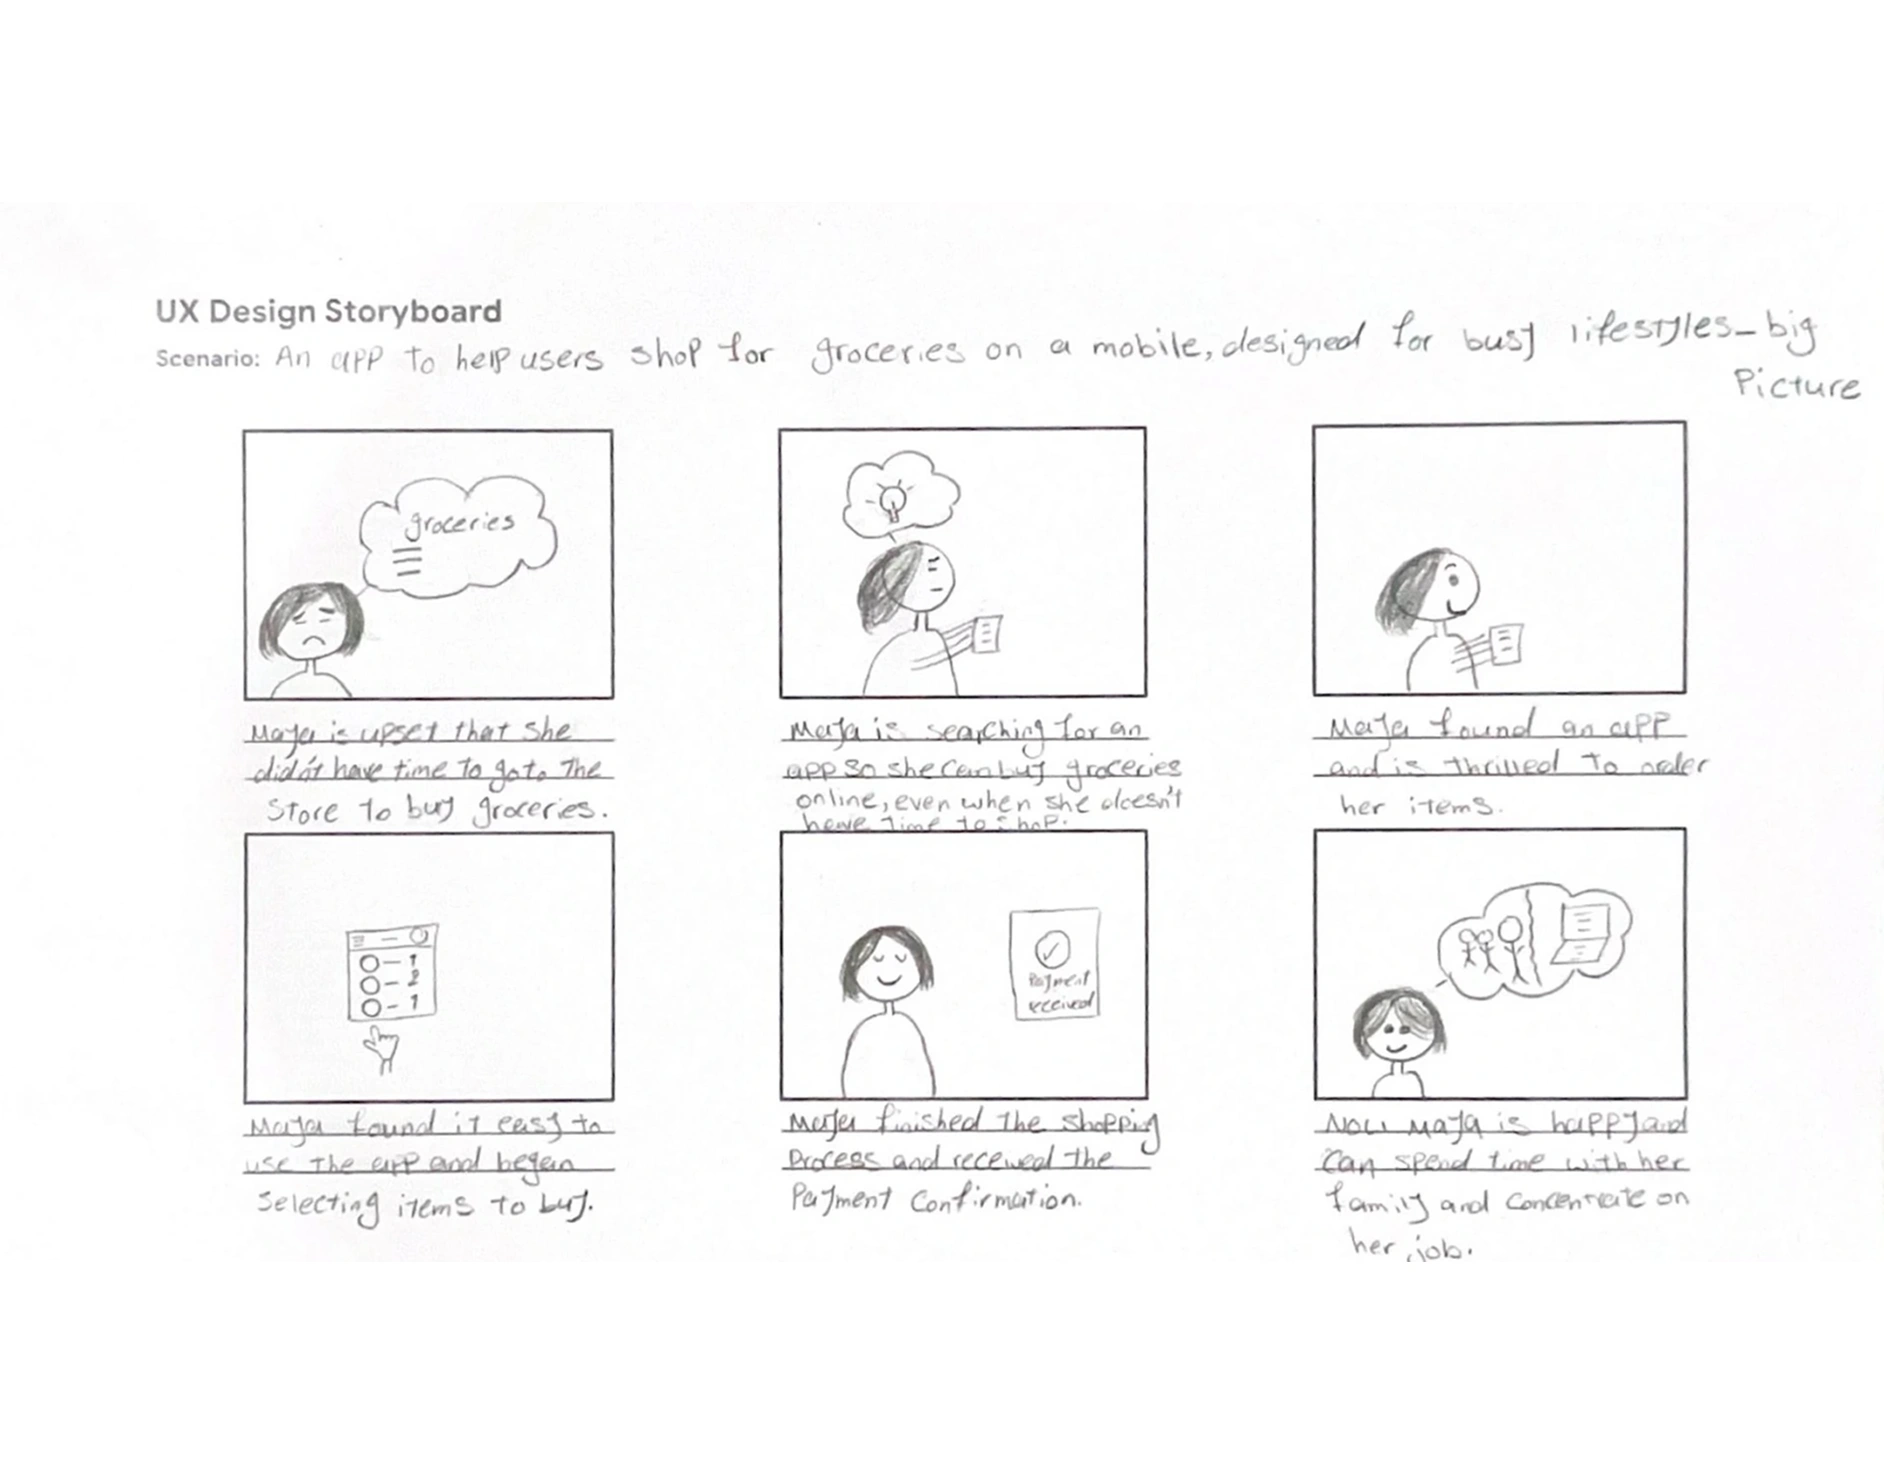 UX Design Storyboard
Scenario: An app to help users shop for groceries on a mobile, designed for busy lifestyles- big
Picture
groceries
Maya is upset that she
didn't have time to go to the
store to buy groceries.
Maya is searching for an
app so she can buy groceries
online, even when she doesn't
have time to shop.
Maya found an app
and is thrilled to order
her items.
1
2
1
Maya found it easy to
use the app and began
selecting items to buy.
Payment
received
Maya finished the shopping
process and received the
Payment Confirmation.
Now Maya is happy and
Can spend time with her
family and concentrate on
her job.